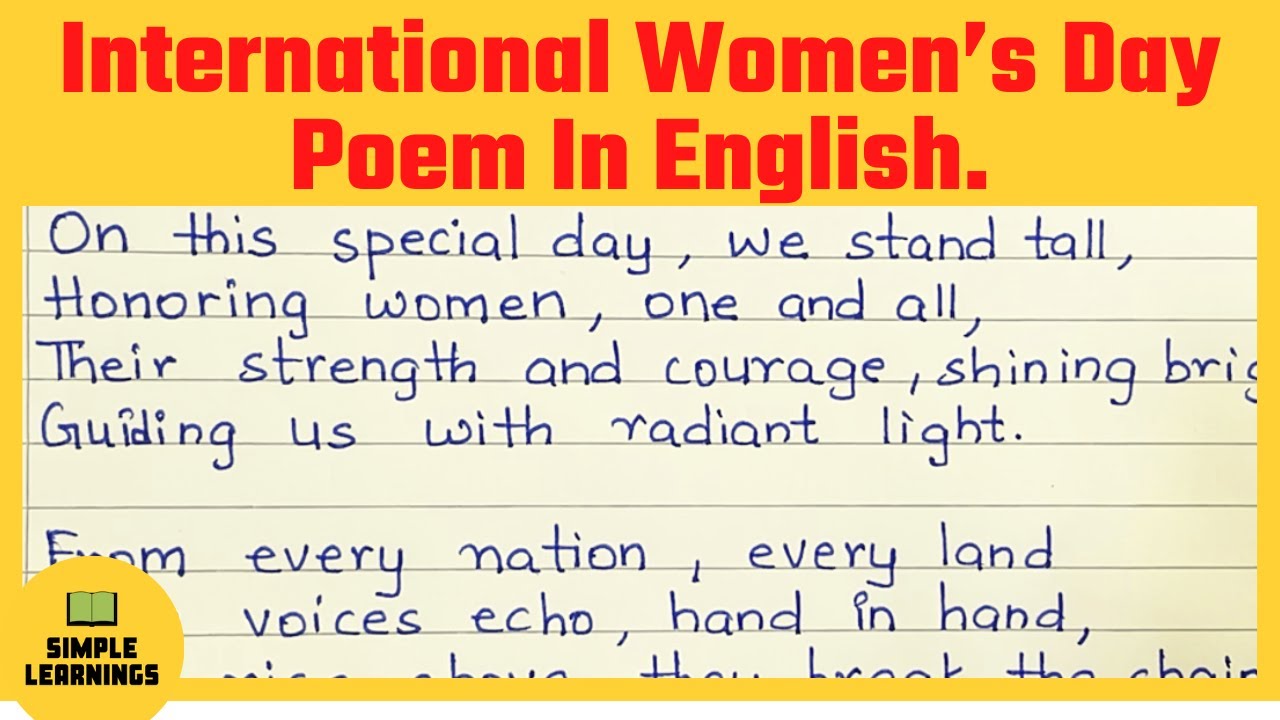 International Women's Day
Poem In English.
On this special day, we stand tall,
Honoring women, one and all,
Their strength and courage, shining brig
Guiding us with radiant light.
From every nation, every land
voices echo, hand in hand,
above, they break the chain
SIMPLE
LEARNINGS